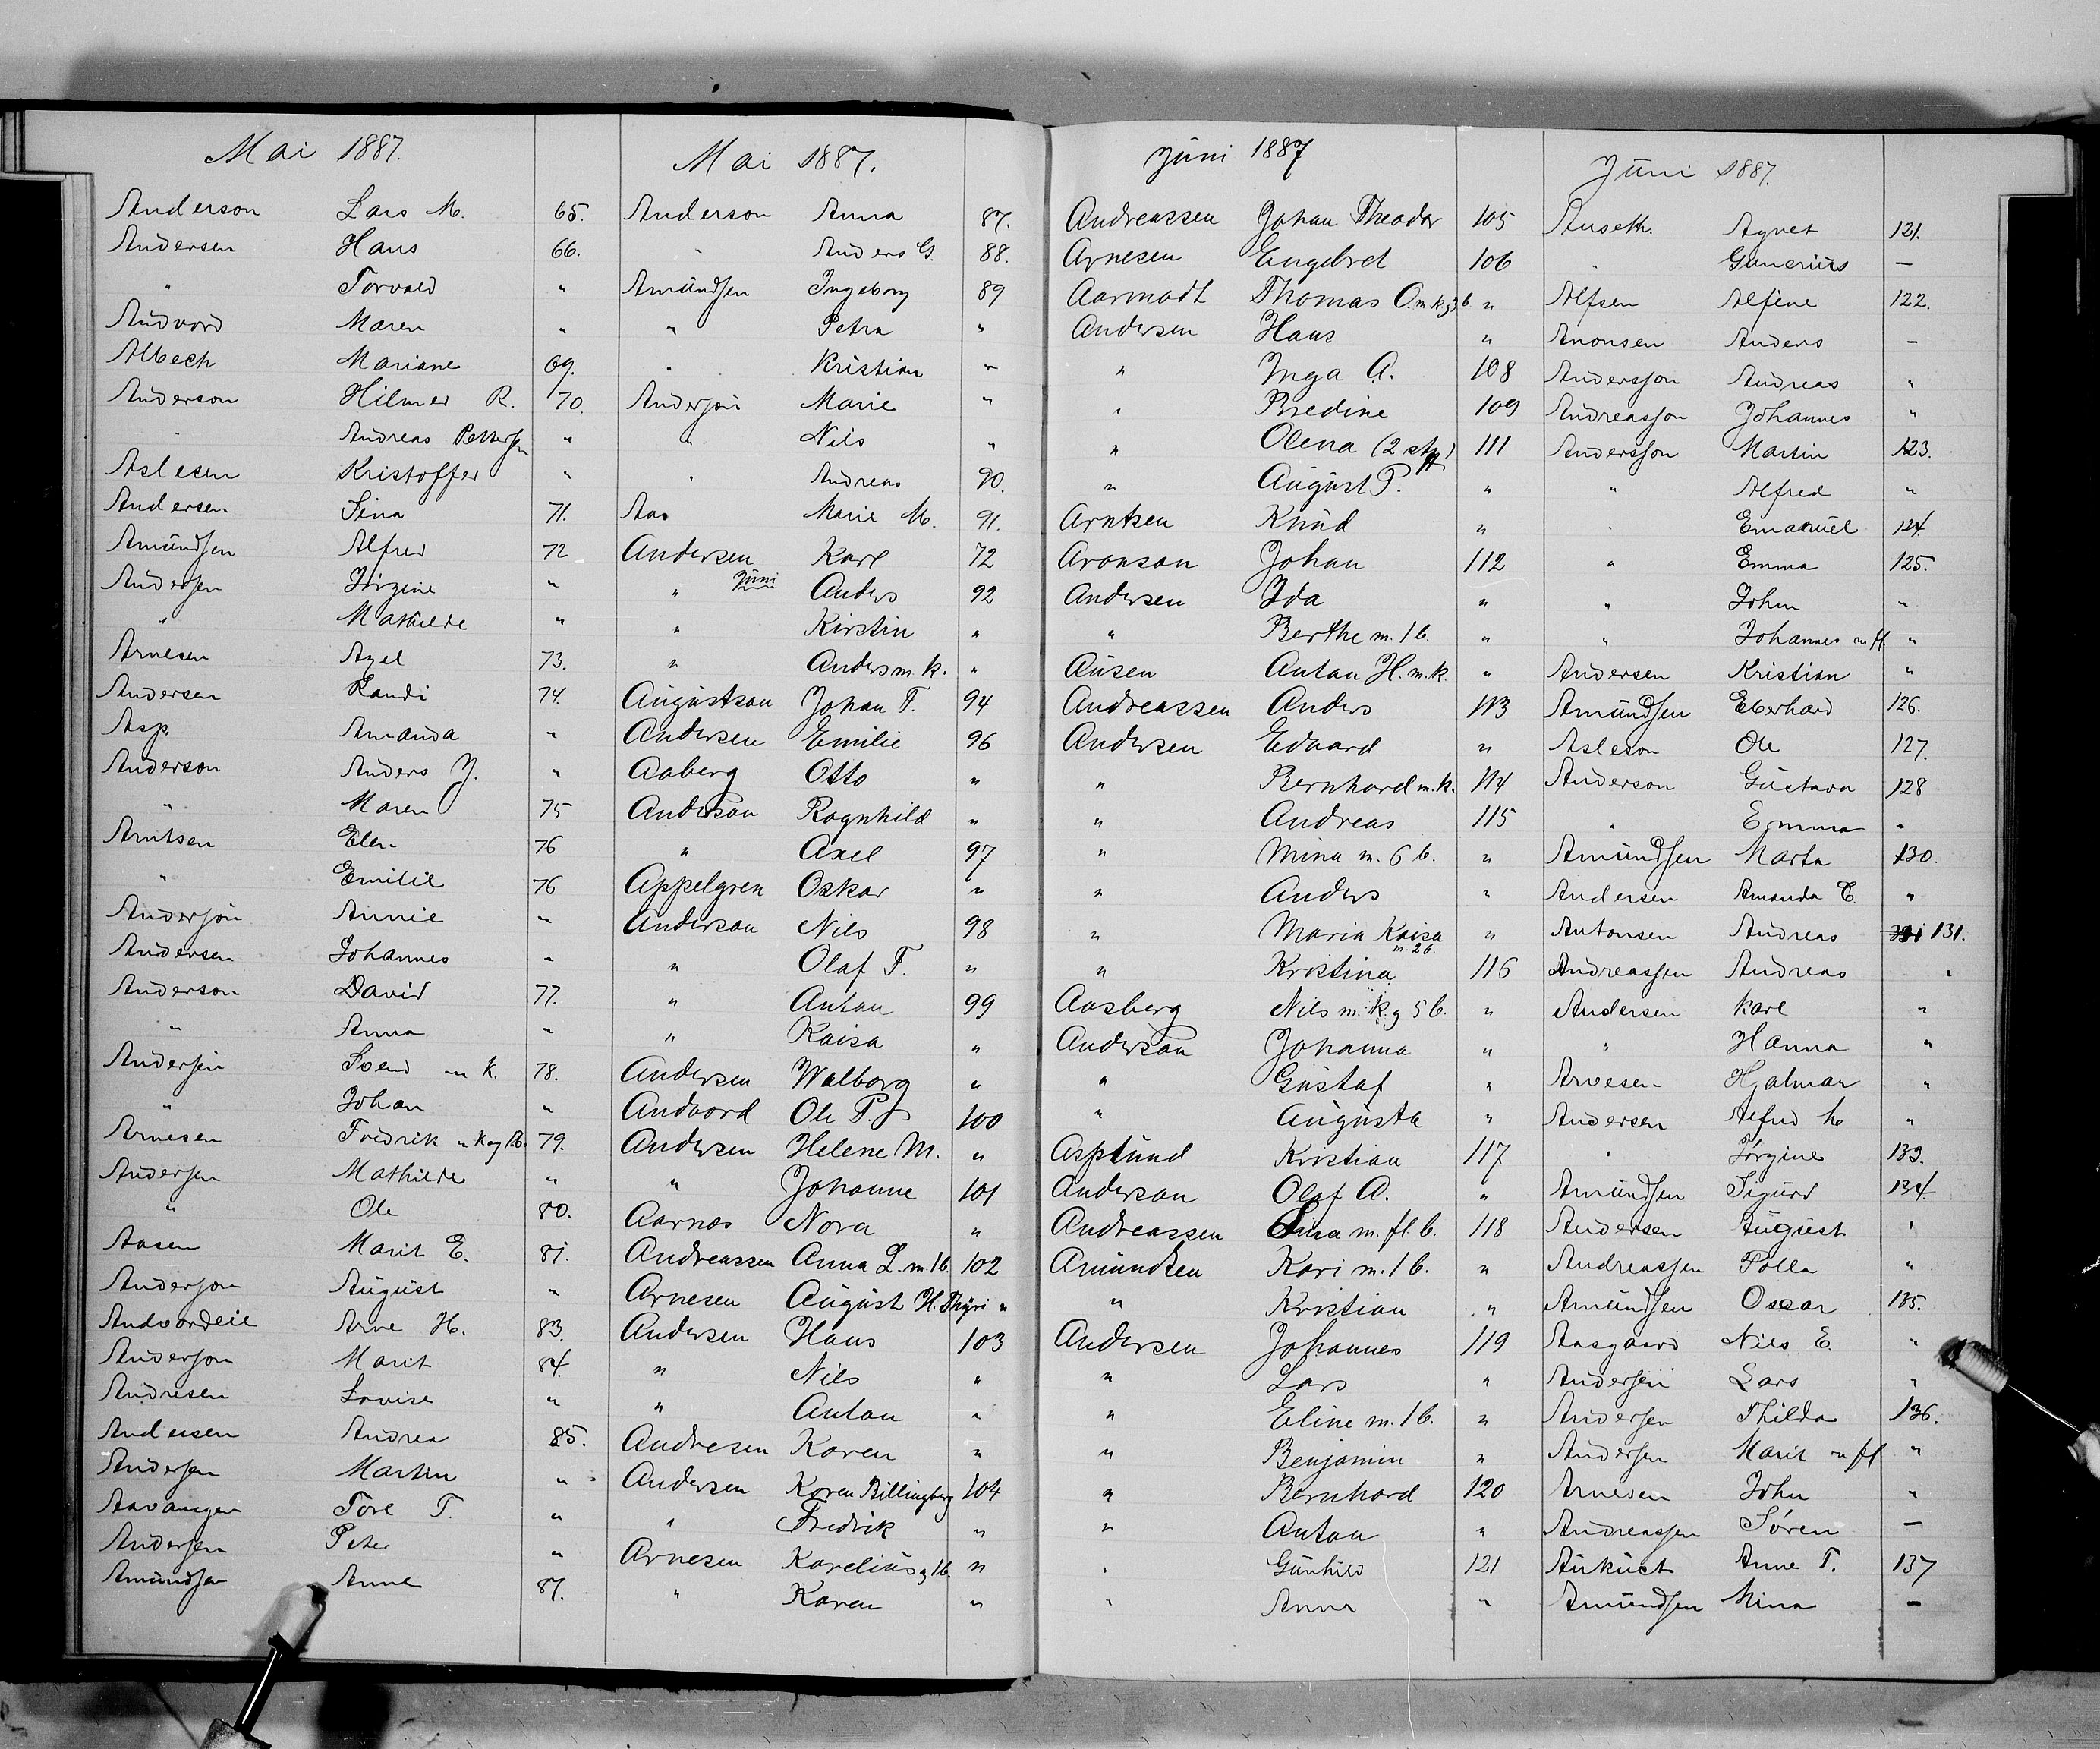 Mai 1887.
Anderson Lars M. 65.
Andersen Hans 66.
" Torvald "
Andvord Maren "
Albech Mariane 69.
Anderson Hilmer R. 70.
" Andreas Petters "
Aslesen Kristoffer "
Andersen Sina 71.
Amundsen Alfred 72
Andersen Jørgine "
" Mathilde "
Arnesen Axel 73.
Andersen Randi 74.
Asp. Amanda "
Anderson Anders J. "
" Maren 75
Arntsen Elen 76
" Emilie 76
Anderson Annie "
Andersen Johannes "
Anderson David 77.
" Anna "
Andersen Svend m k. 78.
" Johan "
Arnesen Fredrik m k og 1b. 79.
Andersen Mathilde "
" Ole 80.
Aasen Marit E. 81.
Anderson August "
Andvordeie Arne H. 83.
Anderson Marit 84.
Andresen Lovise "
Andersen Andrea 85.
Andersen Martin "
Aavangen Tore T. "
Andersen Peter "
Amundsen Anne 87.
Mai 1887.
Anderson Anna 87.
" Anders G. 88.
Amundsen Ingeborg 89
" Petra "
" Kristian "
Anderson Marie "
" Nils "
" Andreas 90.
Aas Marie M. 91.
Andersen Karl 72
" Juni Anders 92
" Kirstin "
" Anders m. k. "
Augustson Johan F. 94
Andersen Emilie 96
Aaberg Otto "
Anderson Ragnhild "
" Axel 97
Appelgren Oskar "
Anderson Nils 98
" Olaf F. "
" Anton 99
" Kaisa "
Andersen Walborg "
Andvord Ole P. 100
Andersen Helene M. "
" Johanne 101
Aarnæs Nora "
Andreassen Anna L. m. 1 b. 102
Arnesen August H. Thyri "
Andersen Hans 103
" Nils "
" Anton "
Andresen Karen "
Andersen Karen Billingberg 104
" Fredrik "
Arnesen Karelius g 1 b. "
" Karen "
Juni 1887
Andreassen Johan Theodor 105
Arnesen Engebret 106
Aarmodt Thomas O. m k g 3 b. "
Andersen Hans "
" Inga A. 108
" Bredine 109
" Olena (2 stp) 111
" August P. "
Arntsen Knud "
Aronson Johan 112
Andersen Ida "
" Berthe m. 1 b. "
Ausen Anton H. m. k. "
Andreassen Anders 113
Andersen Edvard "
" Bernhard m. k. 114
" Andreas 115
" Mina m. 6 b. "
" Anders "
" Maria Kaisa m. 2 b. "
" Kristina 116
Aasberg Nils m. k. g 5 b. "
Anderson Johanna "
" Gustaf "
" Augusta "
Asplund Kristian 117
Anderson Olaf A. "
Andreassen Lina m. fl. b. 118
Amundsen Kari m. 1 b. "
" Kristian "
Andersen Johannes 119
" Lars "
" Eline m. 1 b. "
" Benjamin "
" Bernhard 120
" Anton "
" Gunhild 121
" Anna "
Juni 1887.
Anseth. Agnet 121.
" Gunerius –
Alfsen Alfine 122.
Aronsen Anders –
Andersson Andreas "
Andreasson Johannes "
Andersson Martin 123.
" Alfred "
" Emanuel 124.
" Emma 125.
" John "
" Johannes m fl "
Andersen Kristian "
Amundsen Eberhard 126.
Asleson Ole 127.
Anderson Gustava 128
" Emma "
Amundsen Marta 130.
Andersen Amanda C. "
Antonsen Andreas 131.
Andreassen Andreas "
Andersen Karl "
" Hanna "
Arvesen Hjalmar "
Andersen Alfred "
" Jørgine 133.
Amundsen Sigurd 134
Andersen August "
Andreassen Polla "
Amundsen Oscar 135.
Aasgaard Nils E. "
Andersen Lars "
Andersen Thilda 136.
Andersen Marit m fl "
Arnesen John "
Andreassen Søren –
Aukust Anne T. 137
Amundsen Mina –